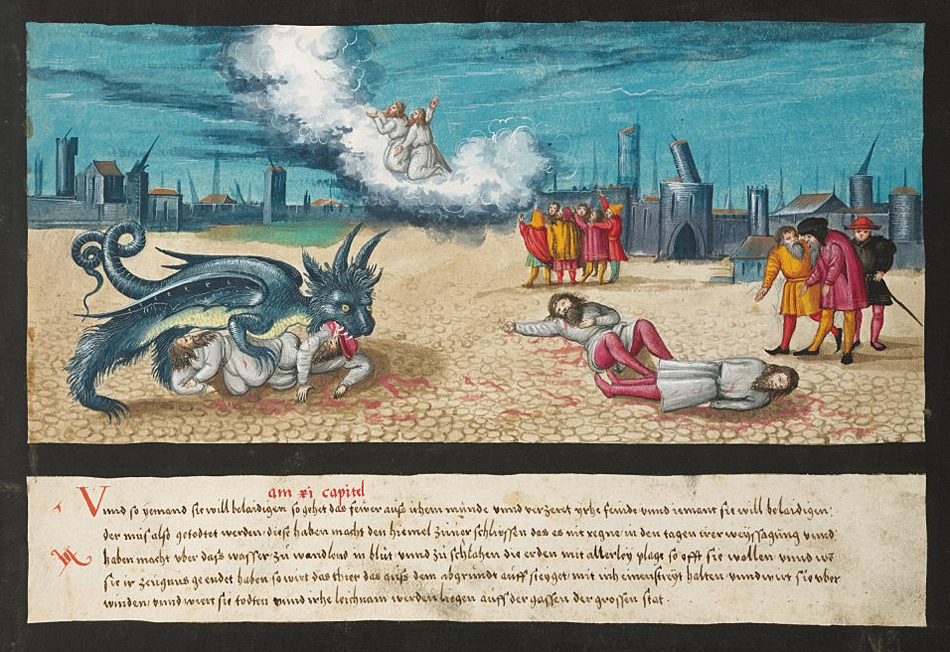 am xi capitel
Vnnd so yemand sie will belaidigen so gehet das fewer auß irhem munde vnnd verzeret yrhe feinde vnnd iement sie will belaidigen
der muß also getodtet werden diese haben macht den hiemel zuuer schlyssen das es nit regne in den tagen irer weyssagung vnnd
haben macht vber dass wasser zu wandlend in blüt vnnd zu schlahen die erden mit allerley plage so offt sie wollen vnnd wen
sie ir zeugnus ge endet haben so wirt das thier das auß dem abgrundt auff sieyget mit inh einen streyt halten vnnd wirt sie vber
winden vnnd wiert sie todten vnnd irhe leichnam werden liegen auff der gassen der grossen stat